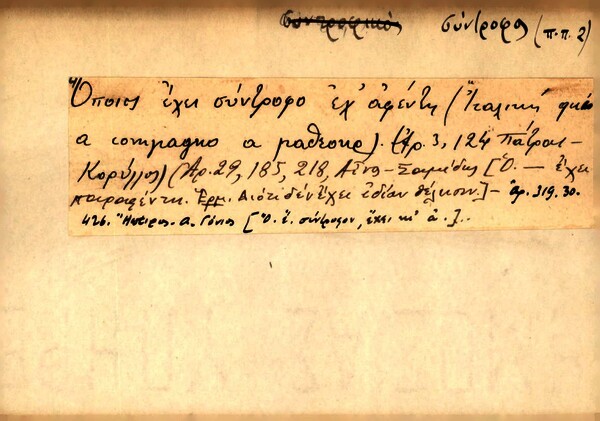 συντροφικός σύντροφος (π.π. 2)
Όποιος έχει σύντροφο έχ' αφέντη (Ιταλική
a compagno a padrone). (Αρ. 3, 124 Πάτραι-
Κορύλλος) (Αρ. 29, 185, 218, Αίνο-Σαμίδης [Ό. — έχει
παραφέντη. Ερμ. Διότι δεν έχει ιδίαν θέλησιν.] - Αρ. 319. 30.
426. Ήπειρος. Α. Γόνιος [Ό. έ. σύντροφον, έχει κι' ά.].